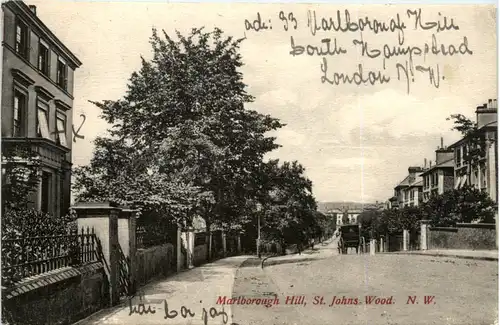 ad: 33 Marlborough Hill
South Hampstead
London N.W.
Marlborough Hill, St. Johns Wood. N. W.